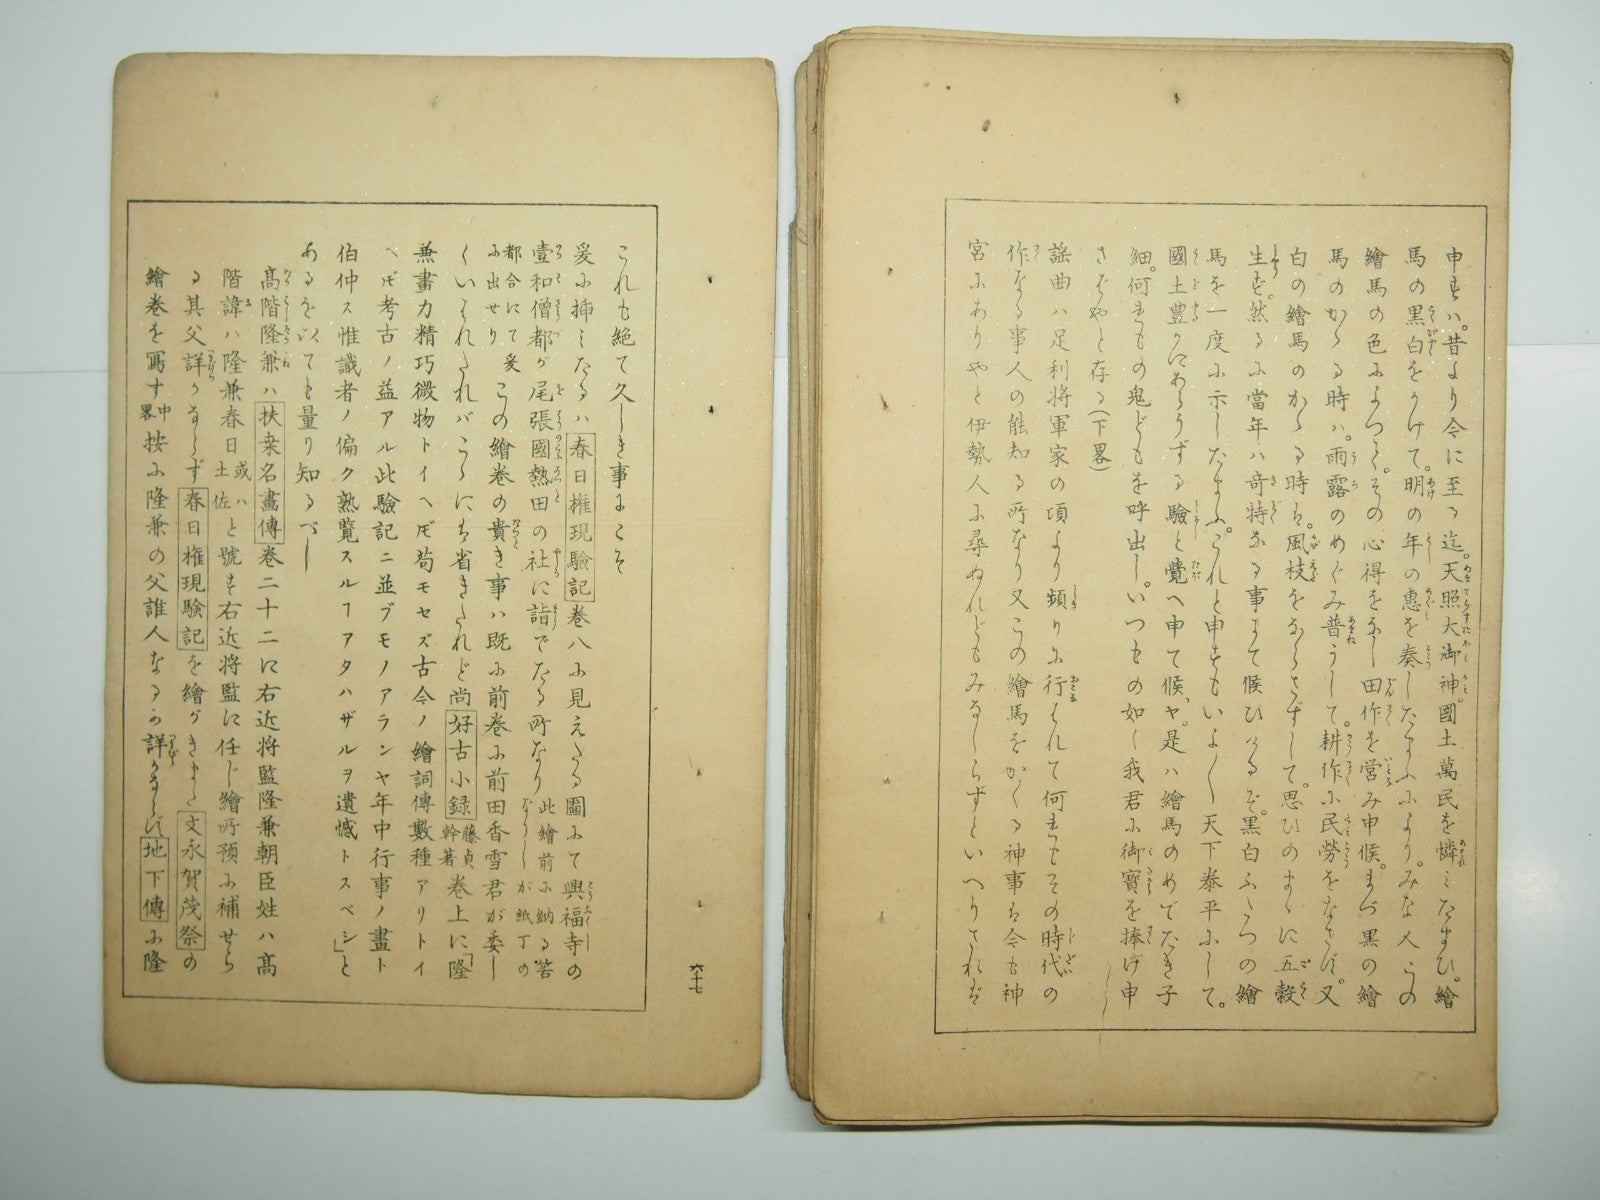 申すハ。昔より今に至る迄。天照大御神。國土萬民を憐ミたまひ。繪
馬の黒白をかけて。明の年の惠を奏したまふにより。みな人この
繪馬の色によつて。その心得をなし田作を営み申候。まづ黒の繪
馬のかゝる時ハ。雨露のめぐみ普うして。耕作に民勞をなさず。又
白の繪馬のかゝる時は。風枝をならさずして。思ひのまゝに五穀
生ず。然るに當年ハ竒特なる事まて候ひけるぞ。黒白ふたつの繪
馬を一度に示したまふ。これと申すもいよ〱天下泰平にして。
國土豊かにあらうずる驗と覺へ申て候、や。是ハ繪馬のめでたき子
細。何すもの鬼どもを呼出し。いつもの如く我君に御寶を捧げ申
さばやと存る(下畧)
謡曲ハ足利將軍家の頃より頻りに行はれて何すもその時代の
作なる事人の能知る所なり又この繪馬をかくる神事は今も神
宮にありやと伊勢人に尋ぬれどもみなしらずといへりされば
これも絶て久しき事にこそ
爰に挿ミたるハ春日権現驗記巻八に見えたる圖にて興福寺の
壹和僧都が尾張國熱田の社に詣でたる所なり此繪前に納る筈なりしが紙丁の
都合にて爰に出せりこの繪巻の貴き事ハ既に前巻に前田香雪君が委し
くいはれたれバこゝには省きたれど尚好古小録藤貞幹著巻上に「隆
兼畫力精巧微物トイヘㇳモ苟モセズ古今ノ繪詞傳數種アリトイ
ヘㇳモ考古ノ益アル此驗記ニ並ブモノアランヤ年中行事ノ畫ト
伯仲ス惟識者ノ偏ク熟覧スルヿアタハザルヲ遺憾トスベシ」と
あるを以ても量り知るべし
高階隆兼ハ扶桒名畫傳巻二十二に右近将監隆兼朝臣姓ハ高
階諱ハ隆兼春日或ハ土佐と號す右近将監に任じ繪所預に補せら
る其父詳かならず春日権現験記を繪がきまた文永賀茂祭の
繪巻を寫す中畧按に隆兼の父誰人なるか詳かならず地下傳に隆
六十七